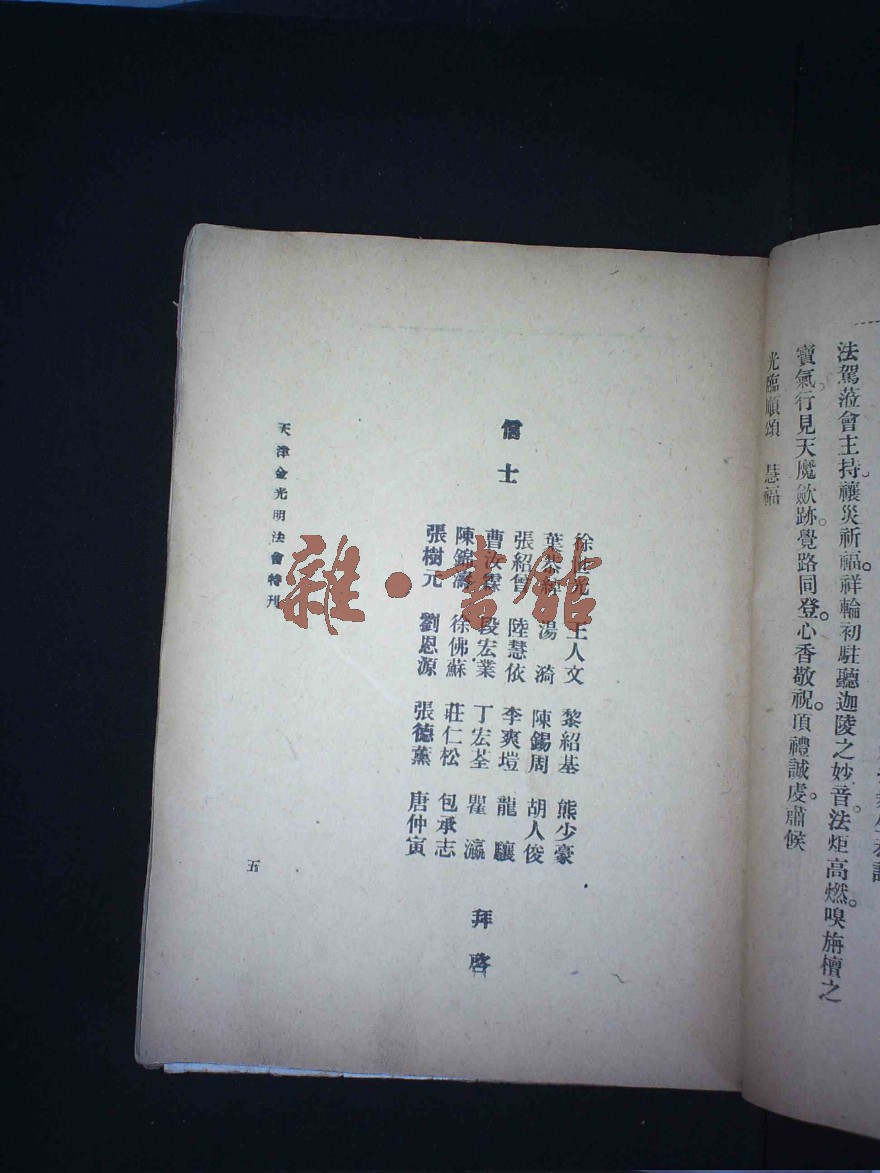 法駕蒞會主持。禳災祈福祥輪初駐聽迦陵之妙音。法炬高燃。嗅旃檀之
寶氣。行見天魔歛跡。覺路同登。心香敬祝。頂禮誠虔。肅候
光臨順頌 慧福
信士
徐世光 王人文 黎紹基 熊少豪
葉恭綽 湯漪 陳錫周 胡人俊
張紹曾 陸慧依 李爽塏 龍驤
曹汝霖 段宏業 丁宏荃 瞿瀛
陳錦濤 徐佛蘇 莊仁松 包承志
張樹元 劉恩源 張德薰 唐仲寅
拜啓
天津金光明法會特刊
五
雜·書館